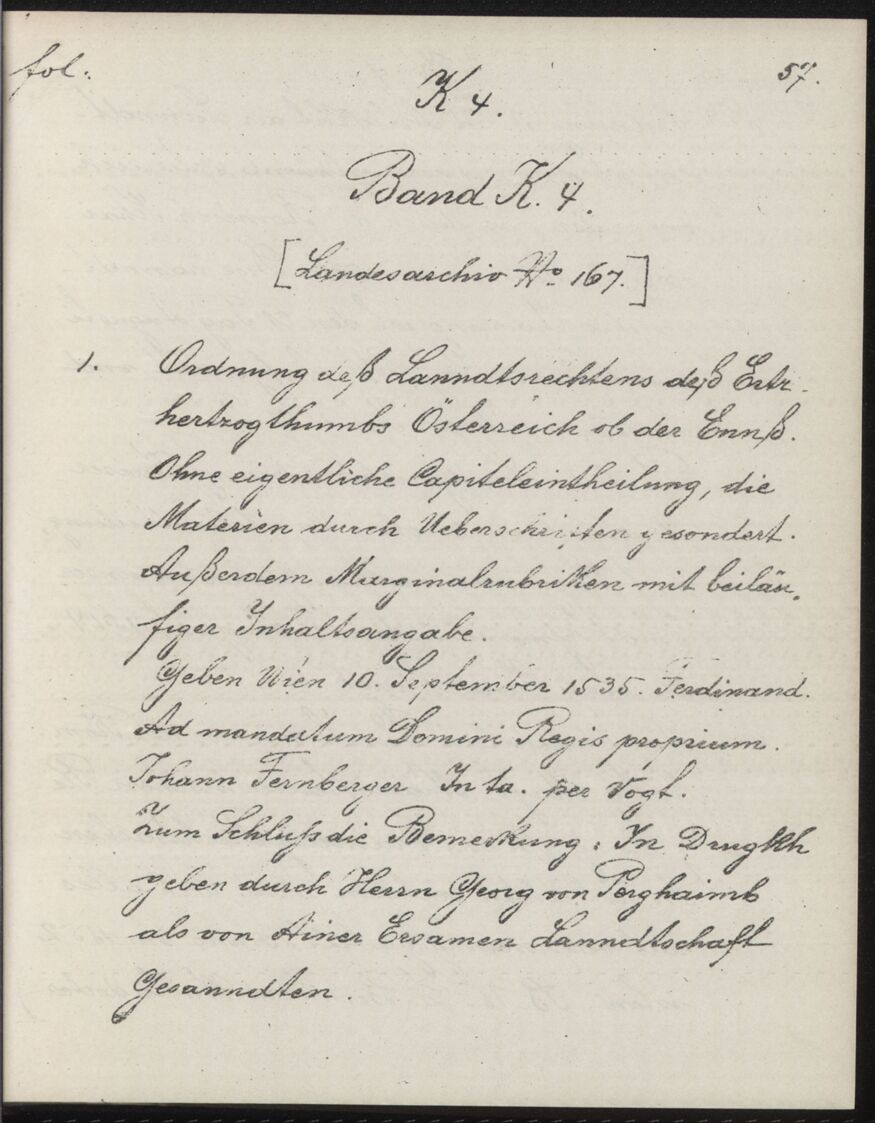 fol.
57.
K 4.
Band K. 4.
[Landesarchiv No. 167.]
1. Ordnung deß Lanndtsrechtens deß Ertz-
hertzogthumbs Österreich ob der Ennß.
Ohne eigentliche Capiteleintheilung, die
Materien durch Ueberschriften gesondert.
Außerdem Marginalrubriken mit beiläu-
figer Inhaltsangabe.
Geben Wien 10. September 1535. Ferdinand.
Ad mandatum Domini Regis proprium.
Johann Fernberger In ta. per Vogt.
Zum Schluß die Bemerkung: In Drugkh
geben durch Herrn Georg von Perghaimb
als von Ainer Ersamen Lanndtschaft
Gesanndten.